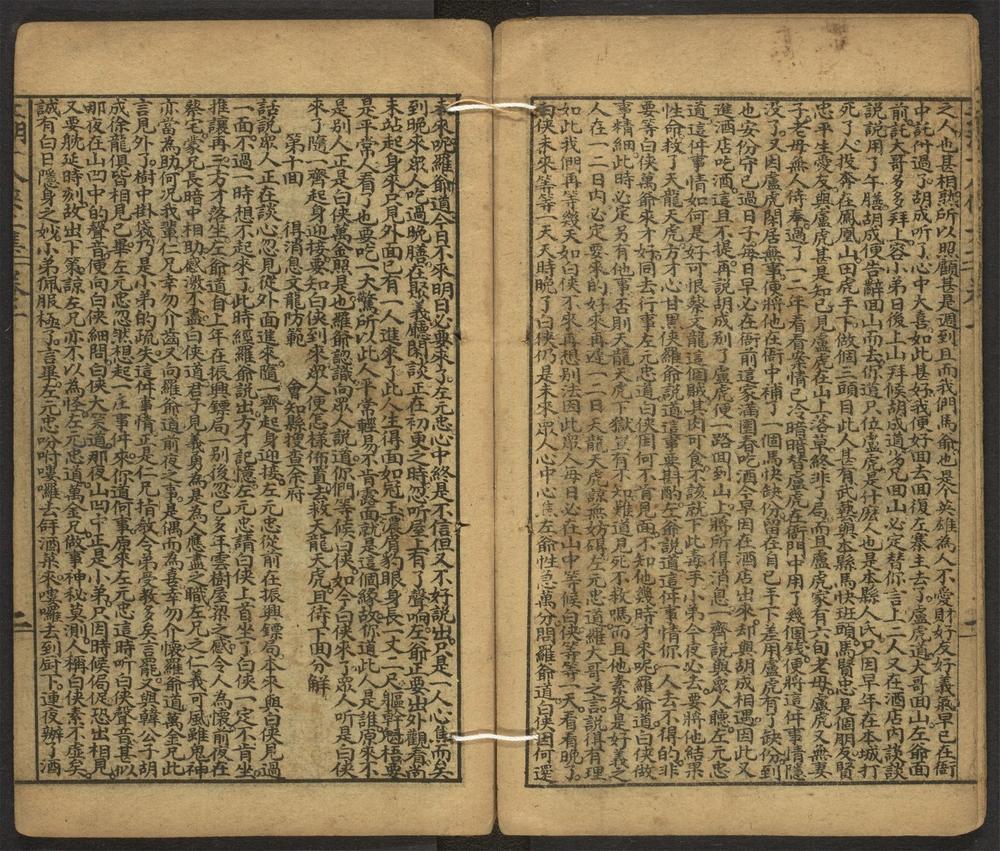 之人也甚相熟所以照顧甚是週到且而我們馬爺也是个英雄為人不愛財好友好義氣早已在衙
中託付過了胡成听了心中大喜如此甚好我便好面去回復左寨主去了盧虎道大哥回山左爺面
前託大哥多多拜上容小弟日後上山拜候胡成道兄回山必定替你言上二人又在酒店內談談
說說用了午膳胡成便告辭回山而去你道只位盧虎是什麽人也是本縣人氏只因早年在本城打
死了人投奔在鳳凰山田虎手下做個三頭目此人甚有武藝與本縣馬快班頭馬賢忠是個朋友賢
忠平生愛友與盧虎甚是知已見盧虎在山上落草終非了局而且盧虎家有六旬老母盧虎又無妻
子老母無人侍奉過了一二年看看案情已冷暗暗替盧虎在衙門中用了幾個錢便將這件事情隱
没了又因盧虎閑居無事便將他在衙中補了一個馬快缺份留在自已手下差用盧虎有了缺份到
也安份守已過日子每日早必在衙前這家滿園春吃酒今早因在酒店出來却與胡成相遇因此又
進酒店吃酒這且不提再說胡成別了盧虎便一路回到山上將所得消息一齊說與眾人聽左元忠
道這件事情如何是好可恨蔡文龍這個賊其肉可食不該就下此毒手小弟今夜必去要將他結果
性命救了天龍天虎方才心甘黑俠羅爺說道這事要斟酌左爺說道這件事情你一人去不得的非
要等白俠萬爺來才好同去行事左元忠道白俠因何不肯見面不知他幾時才來呢羅爺道白俠做
事精細此時必定另有他事否則天龍天虎下獄豈有不知難道見死不救嗎而且他素來是好義之
人在一二日內必定要來的好來再遲一二日天龍天虎諒無妨碍左元忠道羅大哥之言說得有理
如此我們再等幾天如白俠不來再想別法因此眾人每日必在山中等候白俠等等一天看看晚了
白俠未來等等一天天時晚了白俠仍是未來眾人心中心焦左爺性急萬分問羅爺道白俠因何還
未來呢羅爺道今日不來明日必要來了左元忠心中終是不信但又不好說出只是一人心焦而矣
到晚來眾人吃過晚膳在聚義廳閑談正在初更之時忽听屋上有了聲响左爺正要出外觀看尚
未站起身來只見外面已有一人進來了此人生得面如冠玉濃眉豹眼身長一丈二尺軀幹魁梧要
是平常人看了也要吃一大驚所以此人平常輕易不肯露面就是這個緣故你道此人是誰原來不
是別人正是白俠萬金照是也羅爺認識向眾人說道你們等候白俠如今白俠來了眾人听是白俠
來了隨一齊起身迎接要知白俠到來眾人便怎樣佈置去救天龍天虎且待下面分解
第十回 得消息文龍防範 會知縣搜查余府
話說眾人正在談心忽見從外面進來隨一齊起身迎接左元忠從前在振興鏢局本來與白俠見過
一面不過一時想不起來了此時經羅爺說出方才記憶左元忠請白俠上首坐了白俠一定不肯坐
推讓再三方才落坐左爺道自上年在振興鏢局一別後忽已多年雲樹屋梁之感令人為懷前夜在
蔡宅蒙兄長暗中相助感激不盡白俠道君子見義勇為是為人應盡之職左兄之仁義可風雖鬼神
亦當為助何况我輩仁兄幸勿介齒又向羅爺道前夜之事是偶而為甚幸勿介懷羅爺道萬金兄此
言見外了樹中掛袋乃是小弟的疏失這件事情正是仁兄指敎今弟受教多矣言罷又與韓公子胡
成徐龍俱皆相見已畢左元忠忽然想起一庄事件來你道何事原來左元忠這時听白俠聲音甚似
那夜在山凹中的聲音便向白俠細問白俠大笑道那夜山凹中正是小弟只因時候侷促恐出相見
又要躭延時刻故出下策諒左兄亦不以為怪左元忠道萬金兄做事神秘莫測人稱白俠素不虛矣
誠有白日隱身之妙小弟佩服極了言畢左元忠吩咐嘍囉去辦酒菜來嘍囉去到厨下連夜辦了酒